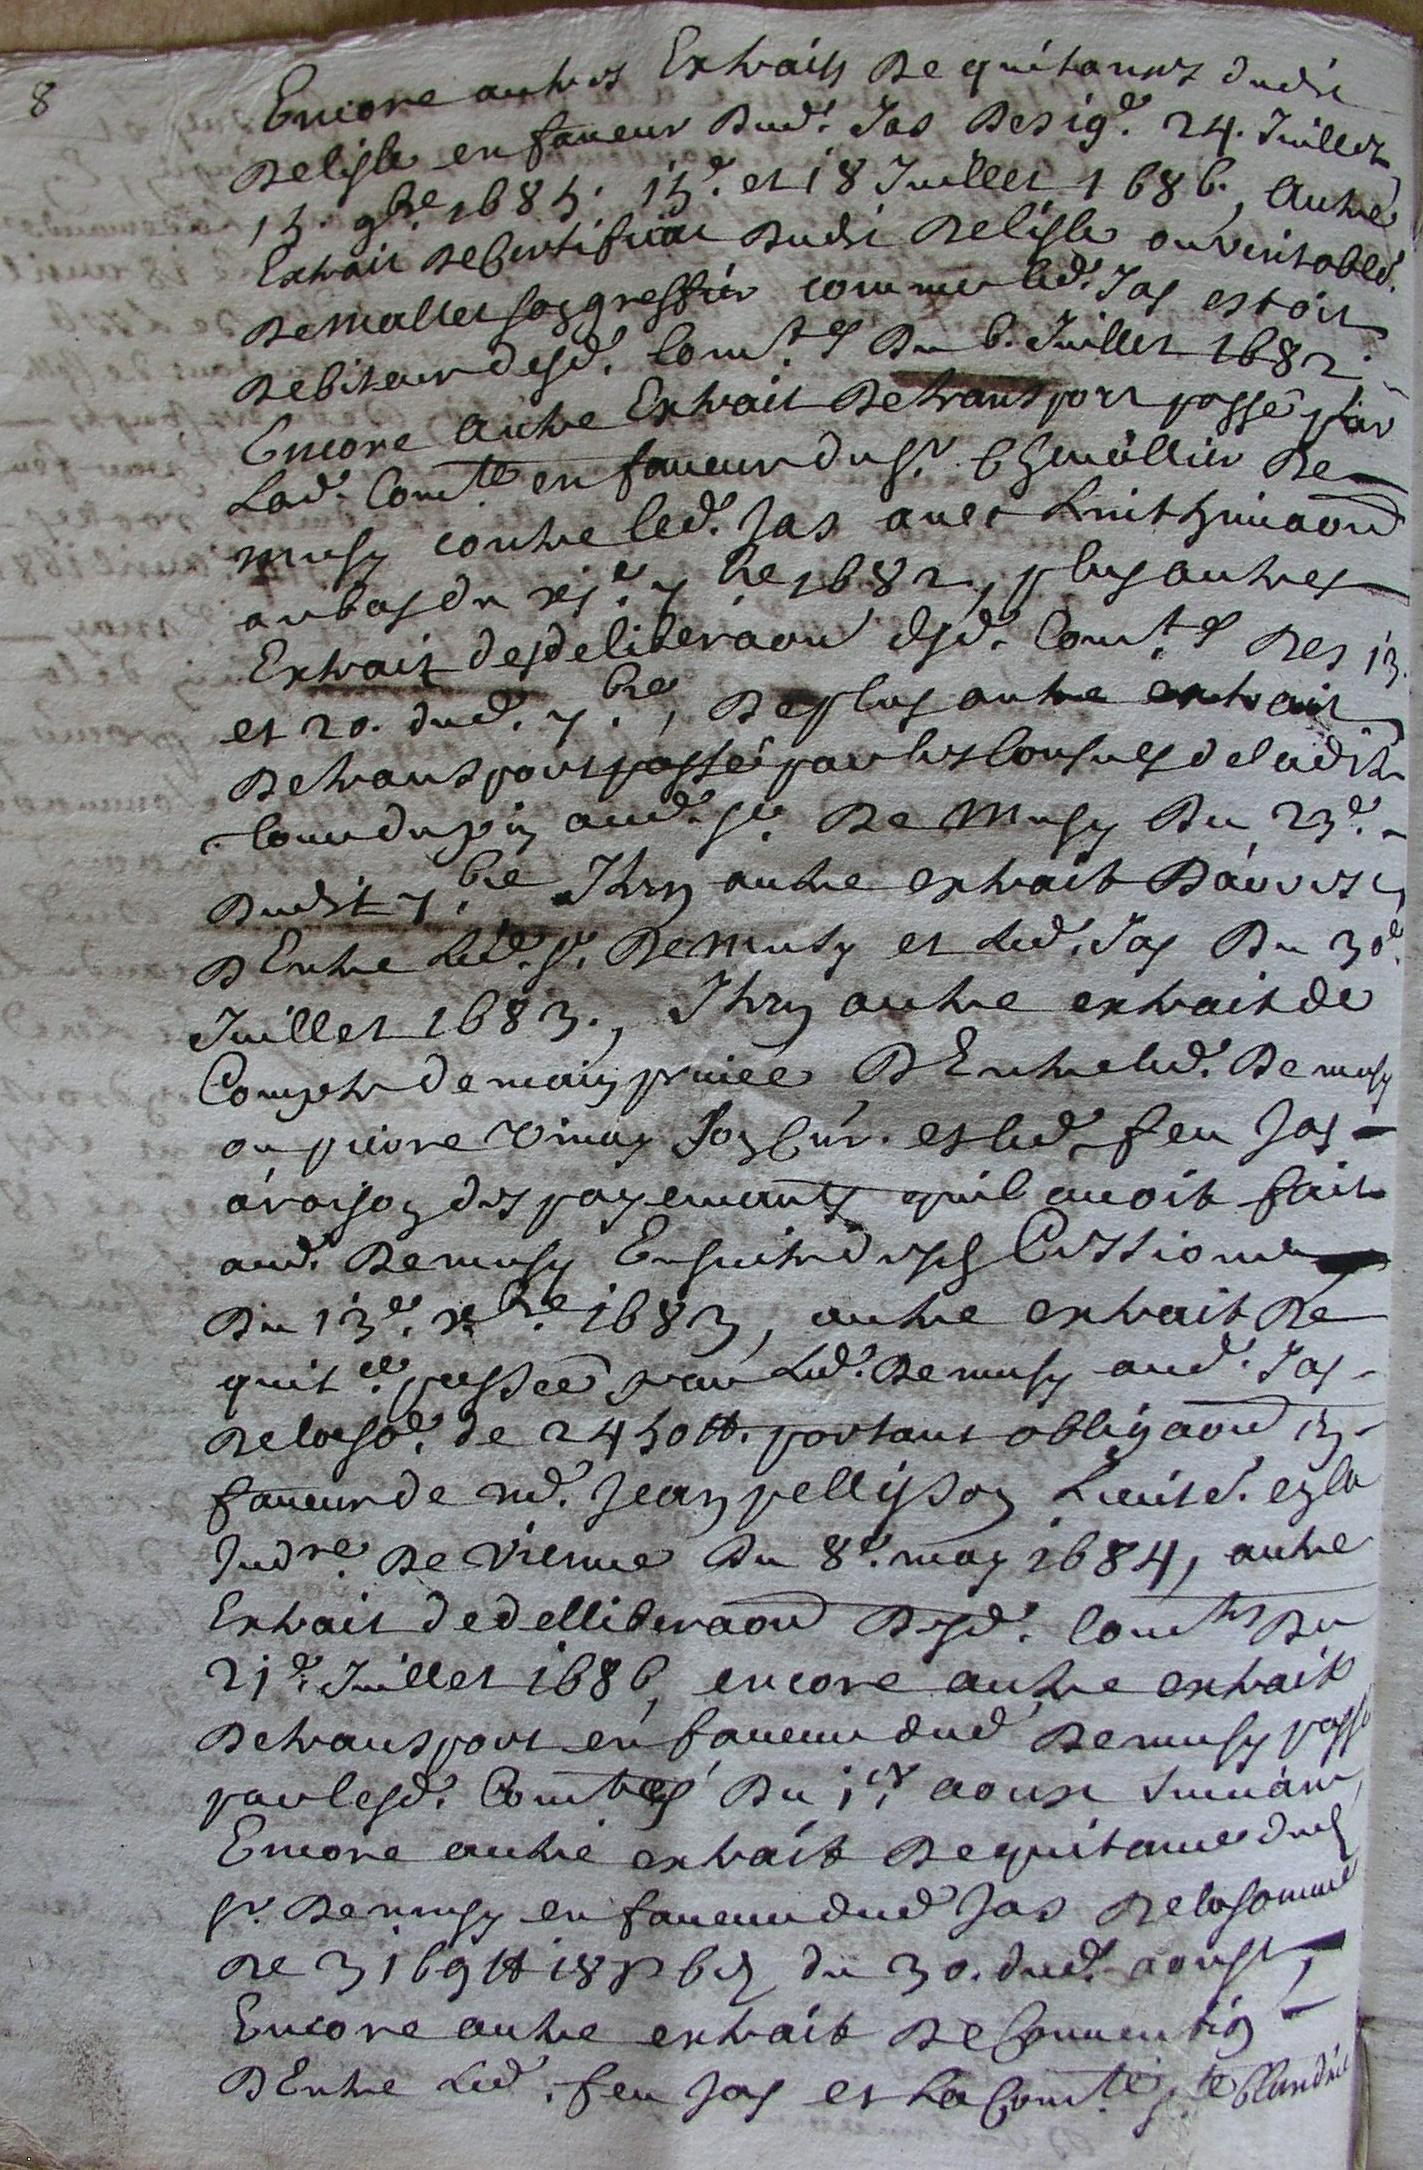 8
Encore autres Extraits de quitances dudit
Delisle en faveur dud. Jas des 19e. 24. Juillet,
15. 9bre 1685. 15e. et 18 Juillet 1686, Autre
Extrait de Certificat dudit Delisle ou
de mallet son greffier comme led. Jas estoit
debiteur desd. Comtes Du 6. Juillet 1682,
Encore autre Extrait de transport passé par
Lad. Comte en faveur du sr. De
musy contre led. Jas avec
au bas du 7bre 1682, plus autres
Extrait des deliberaon desd. Comtes des 13.
et 20. dud. 7bre, de plus autre extrait
de transport passé par les Consuls de ladite
Com du pin aud. sr. De Musy Du 23e.
Dudit 7bre Item autre extrait
D'Entre Led. sr. De Musy et Led. Jas Du 30e.
Juillet 1683., Item autre extrait de
Compte de main privee D'Entre led. De musy
ou pierre Vinay son et led. feu Jas
a raison des payemants quil avoit fait
aud. De musy Ensuite
Du 13e. xbre 1683, autre extrait de
quitce. passée par Led. De musy aud. Jas
de la so. de 2450 ₶. portant obligaon en
faveur de md. Jean pellisson en la
Judre. De Vienne Du 8e. may 1684, autre
Extrait de delliberaon Desd. Comtes Du
21e. Juillet 1686, encore autre extrait
de transport en faveur dud De musy passé
par lesd. Comtes Du 1er aoust suivant,
Encore autre extrait de quitance dud
sr. De musy en faveur dud Jas de la somme
de 3169 ₶ 18 s 6 d du 30. dud. aoust,
Encore autre extrait de Convention
D'Entre Led. feu Jas et La Comte. ste blandine